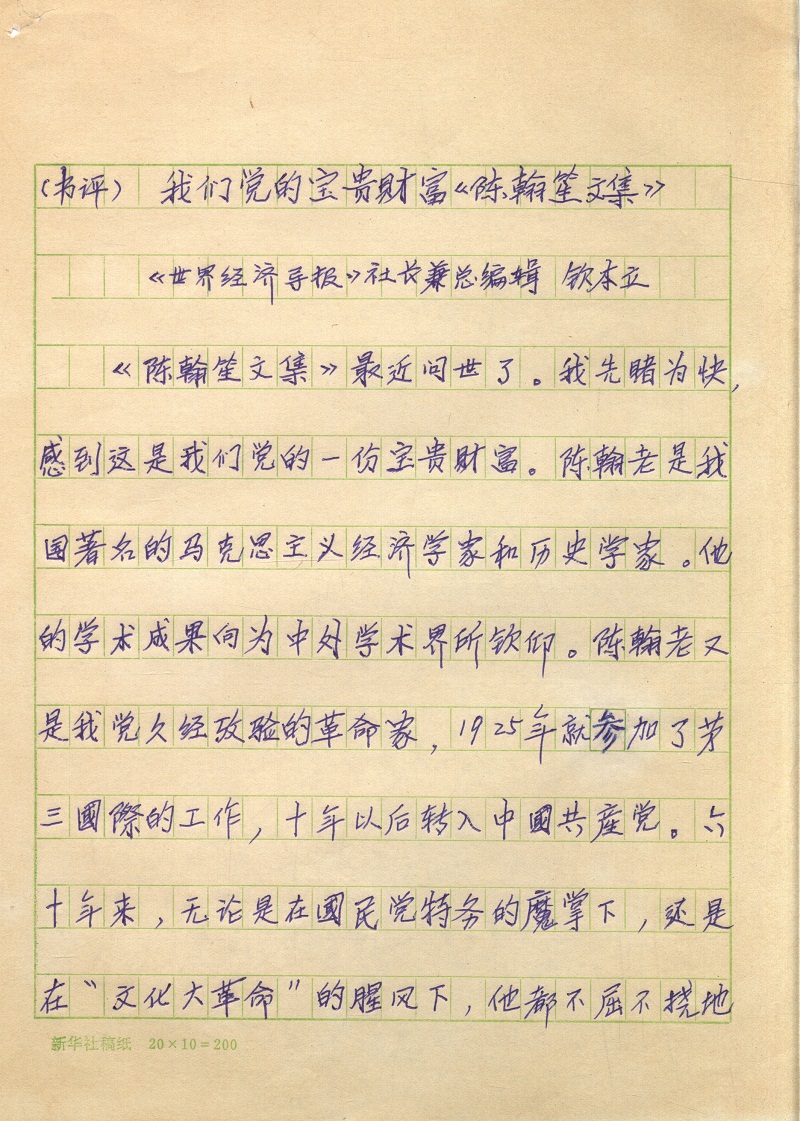 (书评) 我们党的宝贵财富《陈翰笙文集》
《世界经济导报》社长兼总编辑 钦本立
《陈翰笙文集》最近问世了。我先睹为快,
感到这是我们党的一份宝贵财富。陈翰老是我
国著名的马克思主义经济学家和历史学家。他
的学术成果向为中外学术界所钦仰。陈翰老又
是我党久经攷验的革命家,1925年就参加了苐
三國際的工作,十年以后转入中國共産党。六
十年来,无论是在國民党特务的魔掌下,还是
在“文化大革命”的腥风下,他都不屈不挠地
新华社稿纸 20×10=200